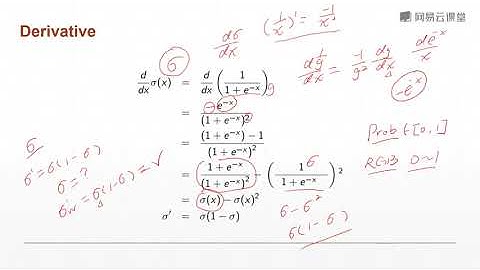 Derivative
网易云课堂
(1/x)' = -1/x²
dσ/dx
d 1/g /dx = -1/g² dg/dx
de^-x/x
-e^-x
σ
d/dx σ(x) = d/dx (1/(1 + e^-x))
g
= e^-x/(1 + e^-x)²
= ((1 + e^-x) − 1)/(1 + e^-x)²
= (1 + e^-x)/(1 + e^-x)² − (1/(1 + e^-x))²
σ
= σ(x) − σ(x)²
σ' = σ(1 − σ)
σ
σ' = σ(1-σ)
σ = ?
= σ(1-σ) = ✓
σ - σ²
σ(1-σ)
Prob ∈ [0,1]
RGB 0~1